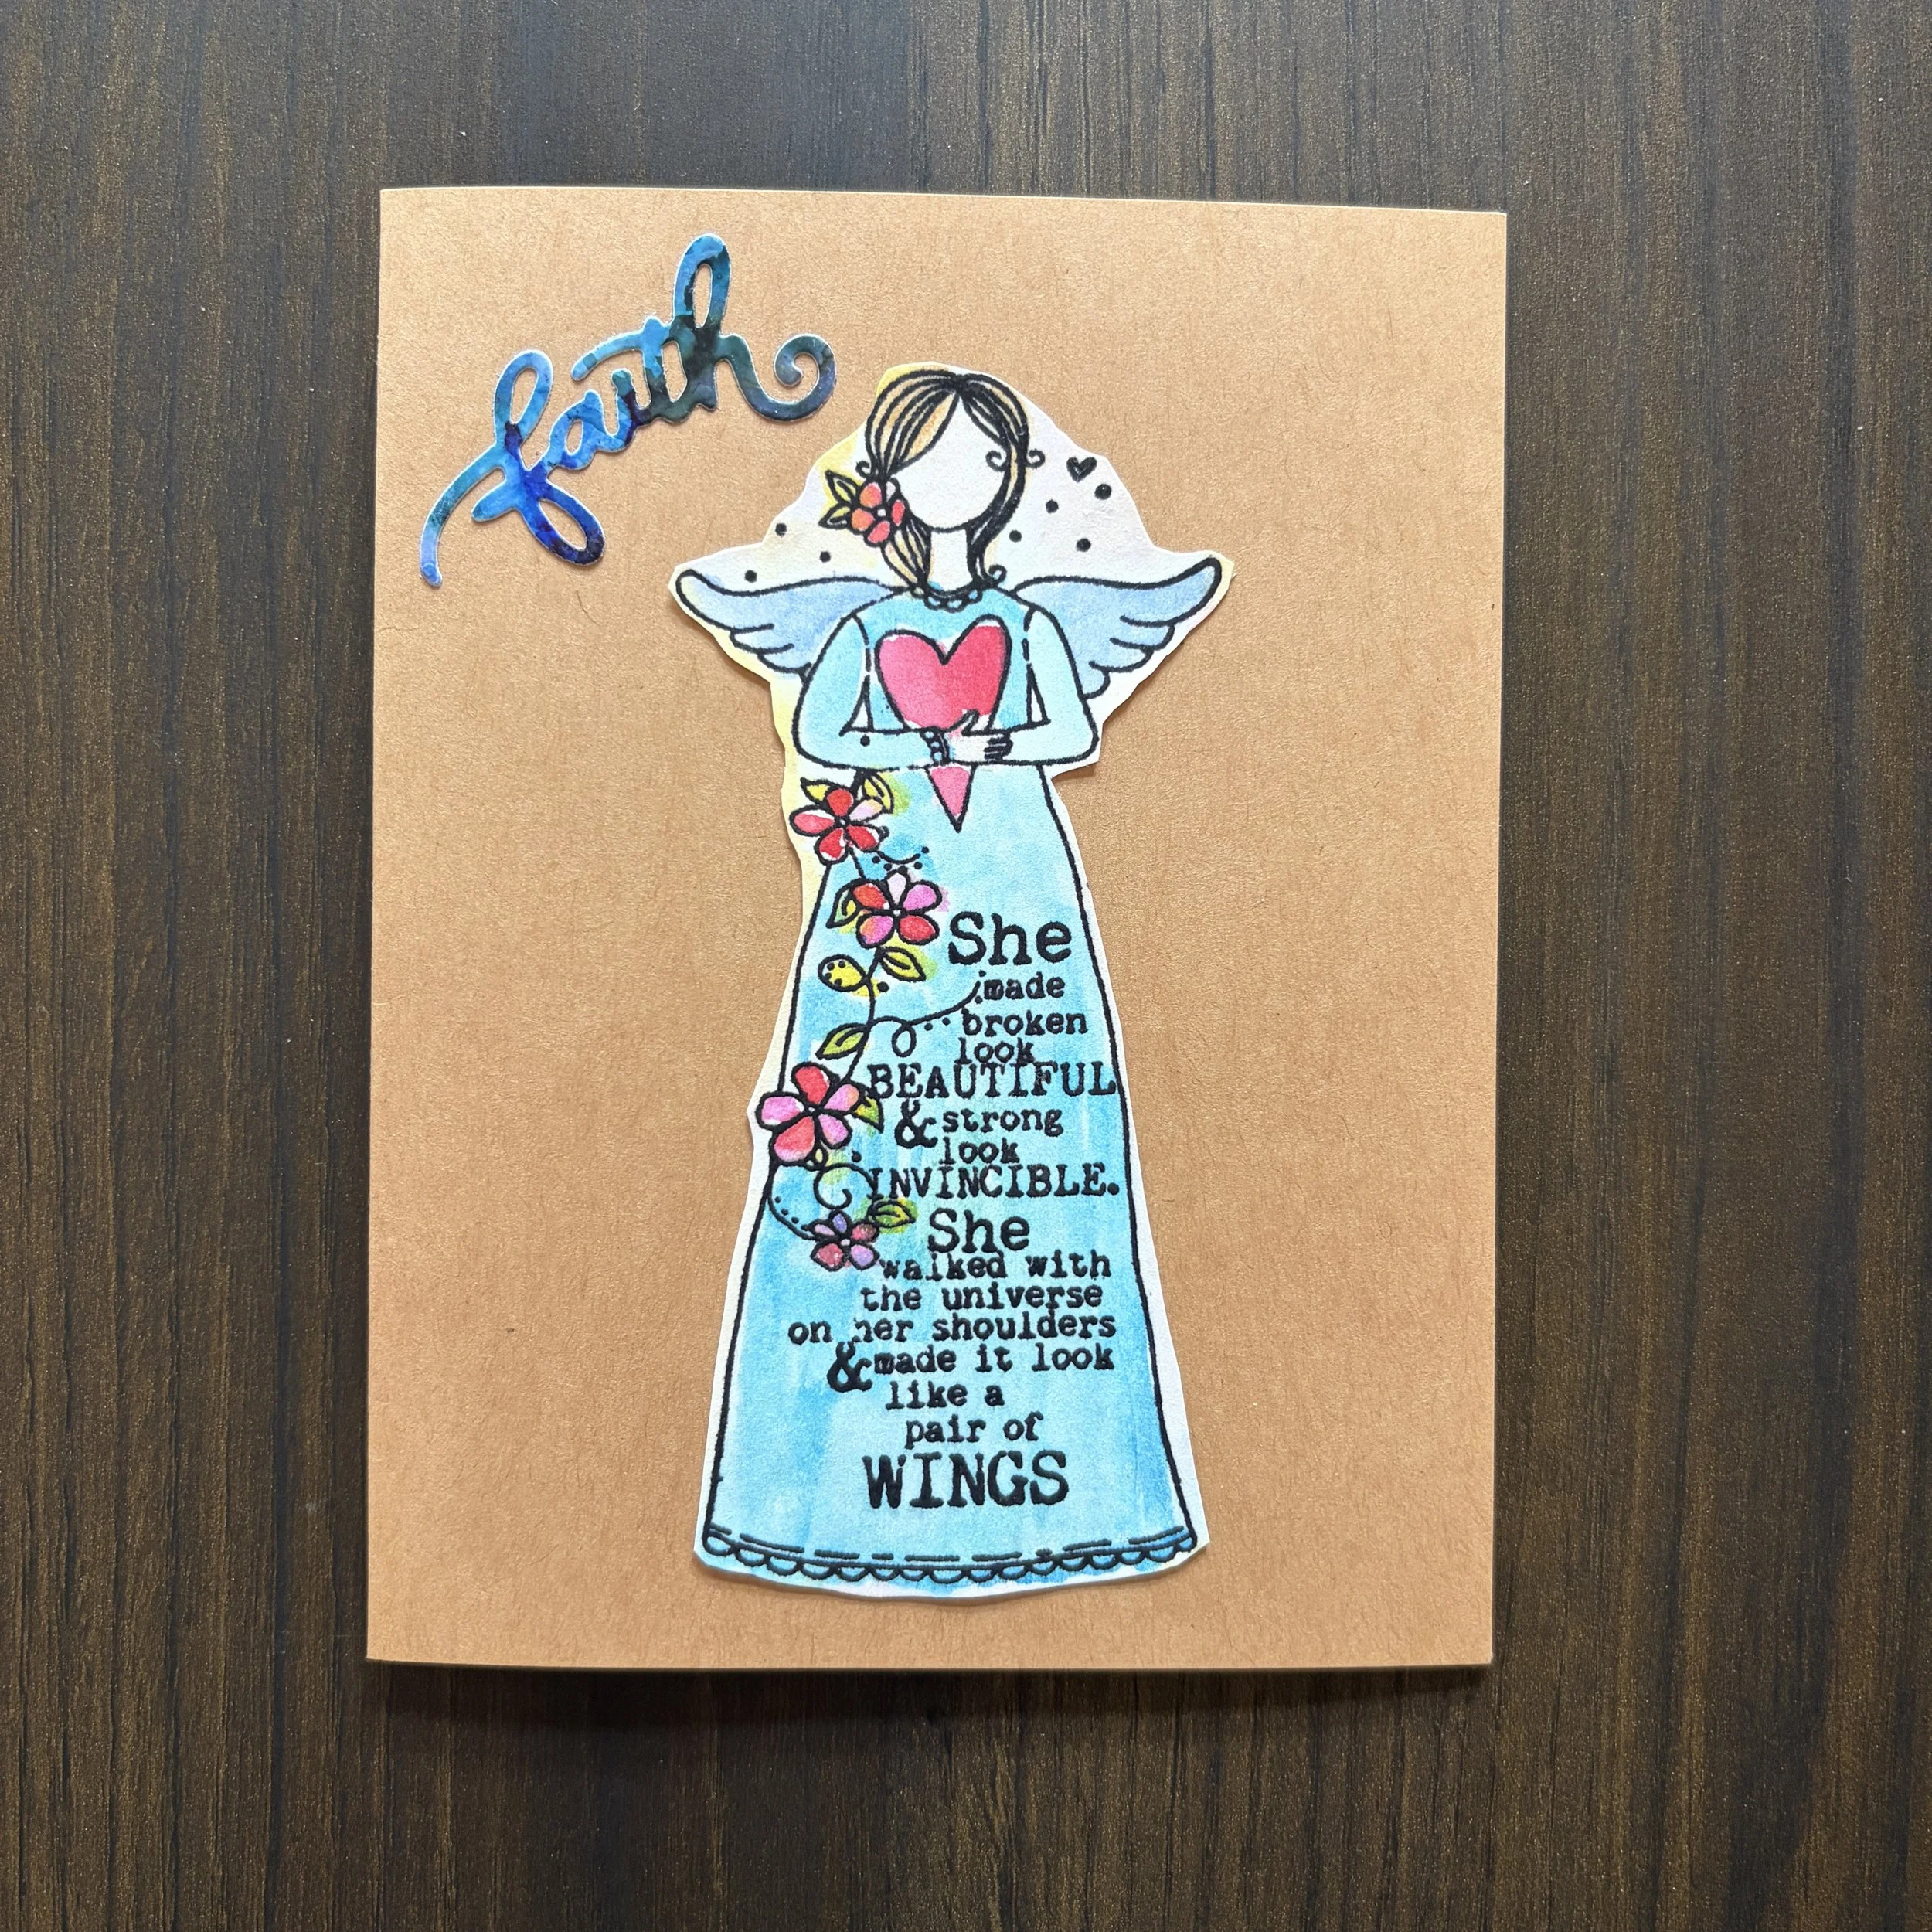 faith
She
made
broken
look
BEAUTIFUL
& strong
look
INVINCIBLE.
She
walked with
the universe
on her shoulders
& made it look
like a
pair of
WINGS